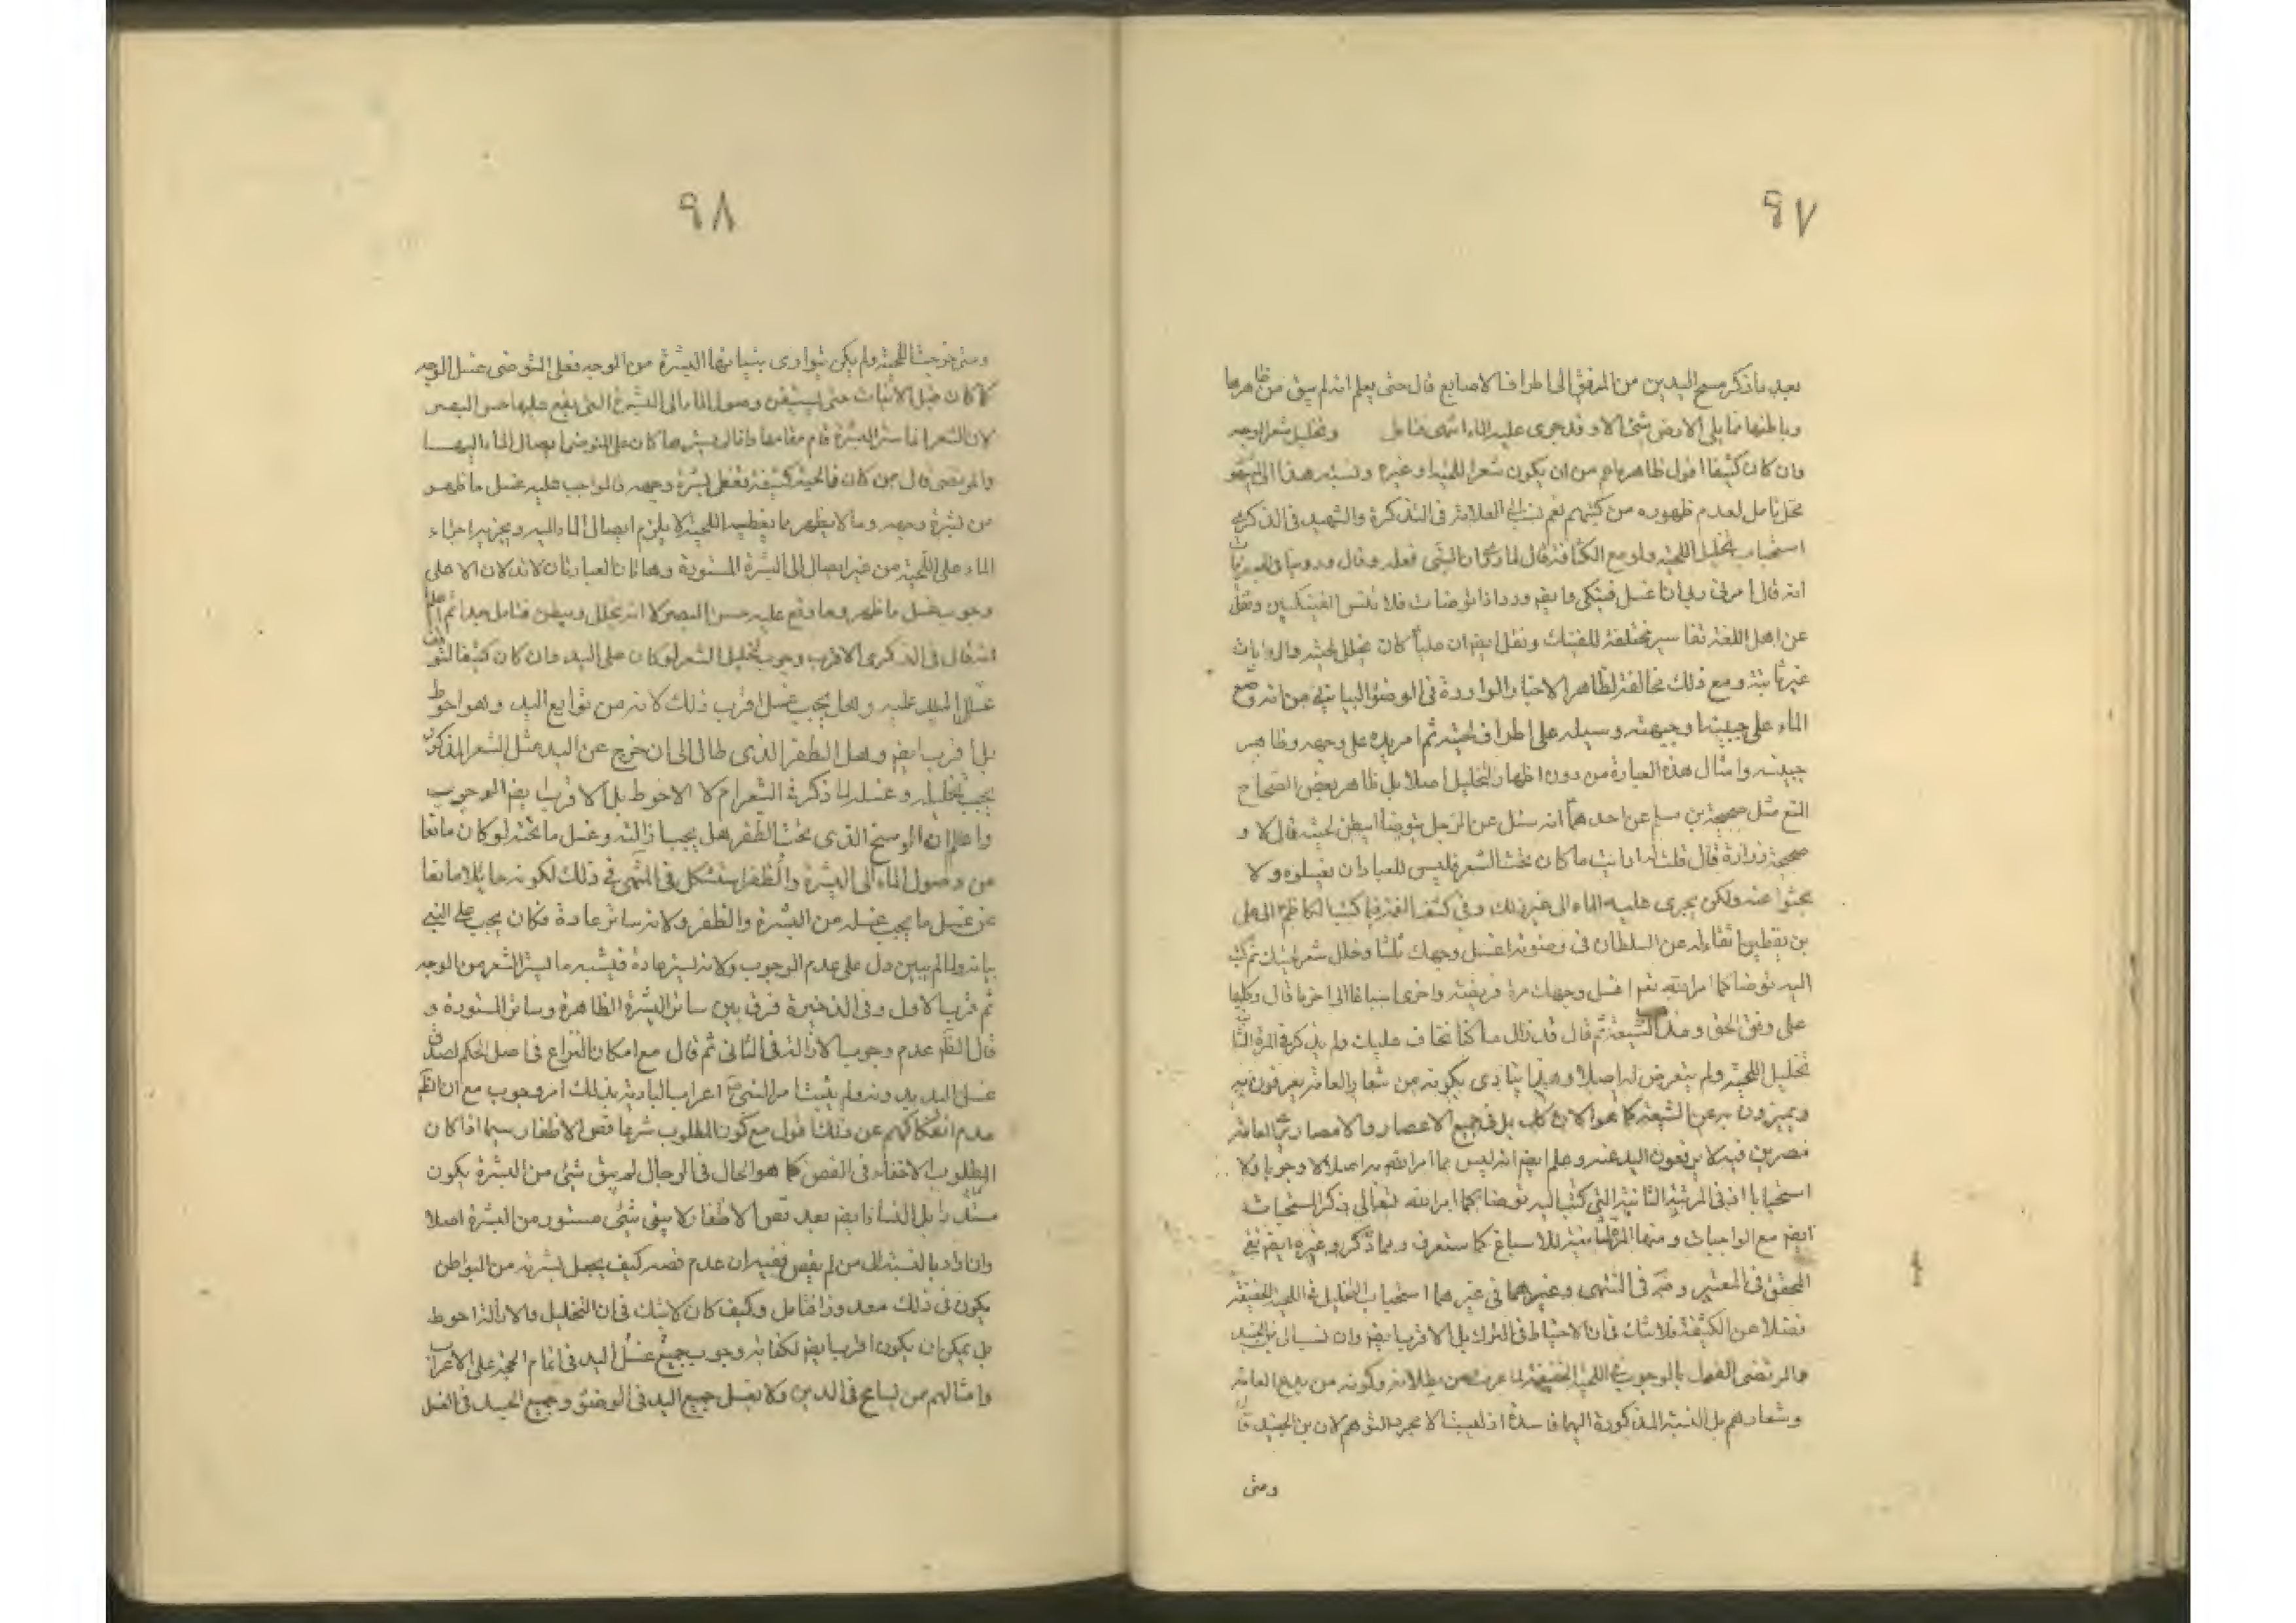 ٩٧
بعد ما ذكر مسح اليدين من المرفق الى اطراف الاصابع قال حتى يعلم انه لم يبق من ظاهرها
وباطنها مما يلى الارض شيئا الا وقد جرى عليه الماء انتهى فتامل وتخليل شعر الوجه
وان كان كثيفا اقول ظاهره اعم من ان يكون شعر اللحية او غيره ونسبة هذا الى
محل تامل لعدم ظهوره من كتبهم نعم نسب الى العلامة فى التذكرة والشهيد فى الذكرى
استحباب تخليل اللحية ولو مع الكثافة قال لما روى ان النبى فعله وقال وروينا فى الجعفريات
انه قال امرنى جبرئيل ان اغسل فنيكى وايضا ورد اذا توضات فلا تنس الفنيكين ونقل
عن اهل اللغة تفاسير مختلفة للفنيك ونقل ايضا ان عليا كان يخلل لحيته والروايات
غير ثابتة ومع ذلك مخالفة لظاهر الاخبار الواردة فى الوضوء البيانية من انه وضع
الماء على جبينه او جبهته وسيله على اطراف لحيته ثم امر يده على وجهه وظاهر
جبينه وامثال هذه العبارة من دون اظهار لتخليل اصلا بل ظاهر بعض الصحاح
المنع مثل صحيحة بن مسلم عن احدهما انه سئل عن الرجل يتوضا ايبطن لحيته قال لا و
صحيحة زرارة قال قلت له ارايت ما كان تحت الشعر فليس للعباد ان يغسلوه ولا
يبحثوا عنه ولكن يجرى عليه الماء الى غير ذلك وفى كشف الغمة فيما كتب الكاظم الى على
بن يقطين اتقاء له عن السلطان فى وضوئه اغسل وجهك ثلثا وخلل شعر لحيتك ثم كتب
اليه توضا كما امر الله نعم اغسل وجهك مرة فريضة واخرى اسباغا الى اخر ما قال
على وفق الحق ومذهب الشيعة ثم قال قد زال ما كنا نخاف عليك ولم يذكر فى المرة الثانية
تخليل اللحية ولم يتعرض له اصلا وهذا ينادى بكونه من شعار العامة يعرفون به
ويميزون به عن الشيعة كما هو الان كذلك بل فى جميع الاعصار والامصار نرى العامة
مصرين فيه لا يرفعون اليد عنه وعلم ايضا انه ليس مما امر الله به اصلا لا وجوبا ولا
استحبابا اذ فى المرتبة الثانية التى كتب اليه توضا كما امر الله تعالى ذكر المستحبات
ايضا مع الواجبات ومنها المرة الثانية للاسباغ كما ستعرف ومما ذكر وغيره ايضا نفى
المحقق فى المعتبر و فى المنتهى وغيرهما فى غيرهما استحباب التخليل فى اللحية الخفيفة
فضلا عن الكثيفة فلا شك فى ان الاحتياط فى الترك بل الاقرب ايضا وان نسب الى بن الجنيد
والمرتضى القول بالوجوب فى اللحية الخفيفة لما عرفت من بطلانه وكونه من بدع العامة
وشعارهم بل النسبة المذكورة اليهما فاسدة اذ ليست الا مجرد التوهم لان بن الجنيد قال
ومتى
٩٨
ومتى خرجت اللحية ولم يكن توارى بنباتها البشرة من الوجه فعلى المتوضى غسل الوجه
كما كان قبل الانبات حتى يستيقن وصول الماء الى البشرة التى يقع عليها حس البصر
لان الشعر اذا ستر البشرة قام مقامها واذا لم يسترها كان على المتوضى ايصال الماء اليها
والمرتضى قال من كان ذا لحية كثيفة تغطى بشرة وجهه فالواجب عليه غسل ما ظهر
من بشرة وجهه وما لا يظهر مما يغطيه اللحية لا يلزم ايصال الماء اليه ويجزيه اجراء
الماء على اللحية من غير ايصال الى البشرة المستورة وهاتان العبارتان لا تدلان الا على
وجوب غسل ما ظهر وما وقع عليه حس البصر لا انه يخلل ويبطن فتامل جدا ثم اعلم
انه قال فى الذكرى الاقرب وجوب تخليل الشعر لو كان على اليد وان كان كثيفا لتوقف
غسل اليد عليه وهل يجب غسله اقرب ذلك لانه من توابع اليد وهو احوط
بل اقرب ايضا وهل الظفر الذى طال الى ان خرج عن اليد مثل الشعر المذكور
يجب تخليله وغسله لما ذكر فى الشعر ام لا الاحوط بل الاقرب ايضا الوجوب
واعلم ان الوسخ الذى تحت الظفر هل يجب ازالته وغسل ما تحته لو كان مانعا
من وصول الماء الى البشرة والظفر استشكل فى المنتهى فى ذلك لكونه حايلا مانعا
عن غسل ما يجب غسله من البشرة والظفر ولانه ساتر عادة فكان يجب على النبى
بيانه ولما لم يبين دل على عدم الوجوب ولانه يستر عادة فيشبه ما يستر الشعر من الوجه
ثم قرب الاول وفى الذخيرة فرق بين ساتر البشرة الظاهرة وساتر المستورة و
قال الظاهر عدم وجوب الازالة فى الثانى ثم قال مع امكان النزاع فى اصل الحكم لصدق
غسل اليد بدونه ولم يثبت امر النبى اعراب البادية بذلك امر وجوب مع ان الظاهر
عدم انفكاكهم عن ذلك اقول مع كون المطلوب شرعا قص الاظفار سيما اذا كان
المطلوب الاخفاء فى القص كما هو الحال فى الرجال لم يبق شىء من البشرة يكون
مستورا بل النساء ايضا بعد قص الاظفار لا يبقى شىء مستور من البشرة اصلا
وان اراد بالنسبة الى من لم يقص ففيه ان عدم قصه كيف يجعل بشرته من البواطن
يكون فى ذلك معذورا فتامل وكيف كان لا شك فى ان التخليل والازالة احوط
بل يمكن ان يكون اقرب ايضا لكفاية وجوب جميع غسل اليد فى اتمام الحجة على الاعراب
وامثالهم ممن يسامح فى الدين ولا يغسل جميع اليد فى الوضوء وجميع الجسد فى الغسل